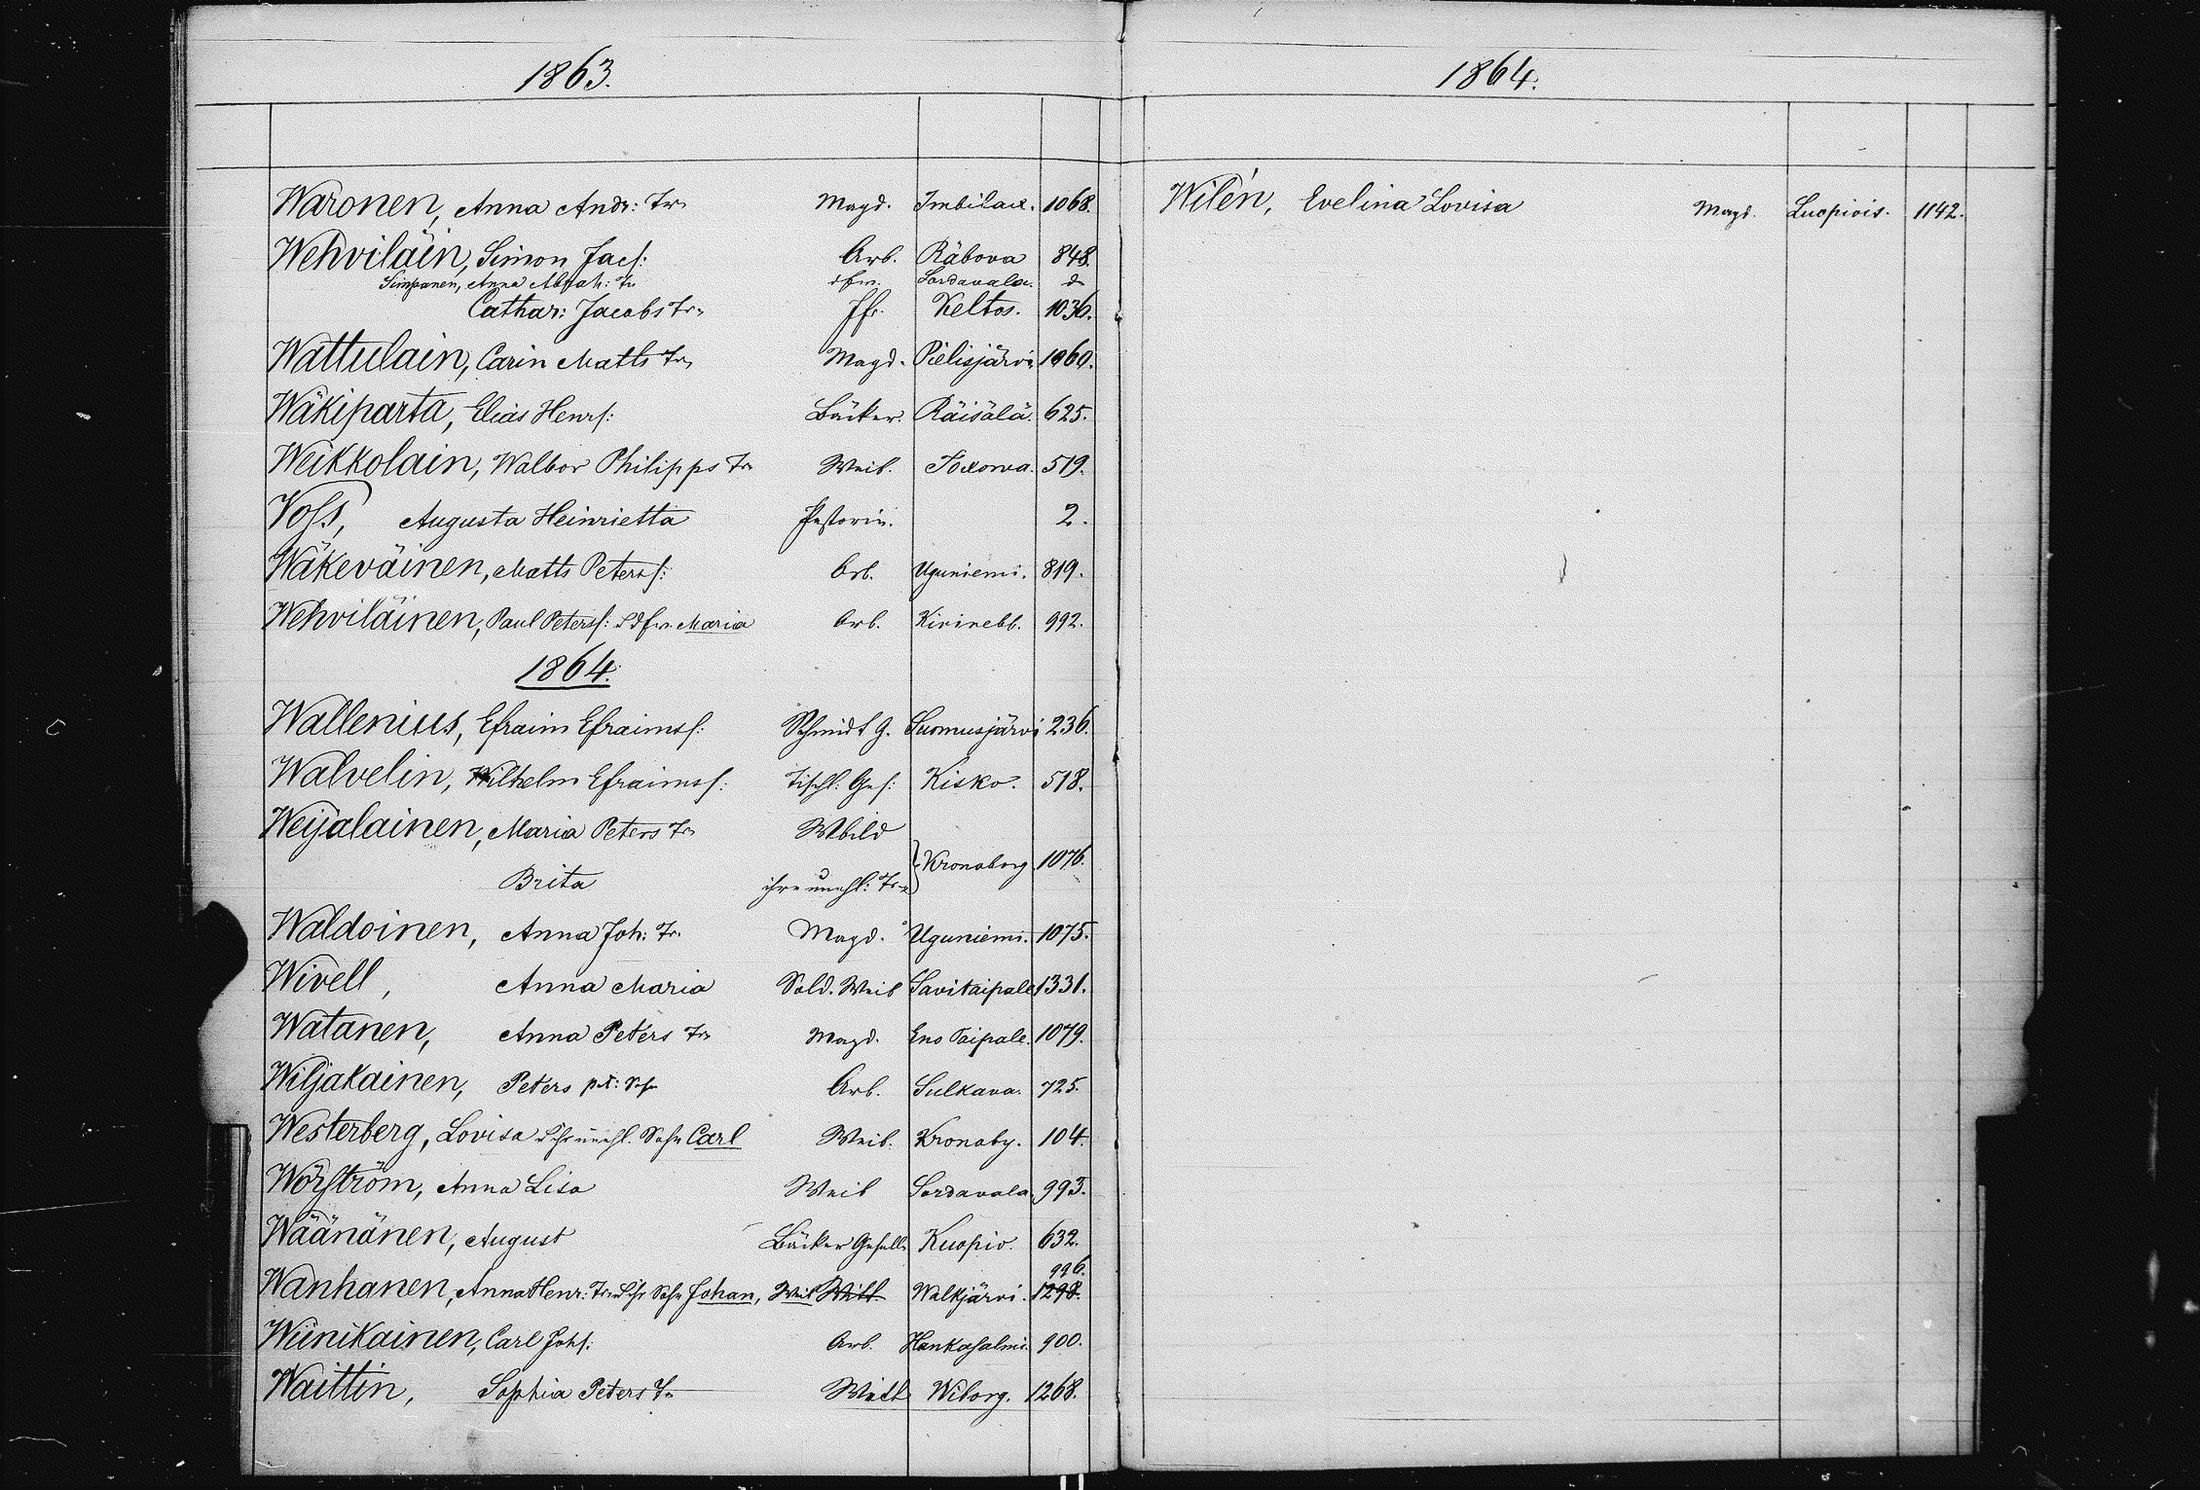 1863.
Waronen, Anna Andr: Tr. Magd. Imbilax. 1068.
Wehviläin, Simon Jacs: Arb. Räbova 848.
Simpanen, Anna Abrah: Tr. Sordavala. do
Cathar: Jacobs Tr. Jfr. Keltos. 1036.
Wattulain, Carin Matts Tr. Magd. Pielisjärvi. 1060.
Wäkiparta, Elias Henrs: Bäcker. Räisälä. 625.
Weikkolain, Walbor Philipps Tr. Weib. Toxowa. 519.
Voss, Augusta Heinrietta Pastorin. 2.
Wäkeväinen, Matts Peterss: Arb. Uguniemi. 819.
Wehviläinen, Paul Peterss: Maria Arb. Kirinebb. 992.
1864.
Wallenius, Efraim Efraimss: Schmidt G. Suomusjärvi 236.
Walvelin, Wilhelm Efraimss: Tischl: Ges: Kisko. 518.
Weijalainen, Maria Peters Tr. Weib
Kronoborg 1076.
Brita ihre unehl: Tr.
Waldoinen, Anna Joh: Tr. Magd. Uguniemi. 1075.
Wivell, Anna Maria Sold. Weib Savitaipale 1331.
Watanen, Anna Peters Tr. Magd. Eno Taipale. 1079.
Wiljakainen, Peters Arb. Sulkava. 725.
Westerberg, Lovisa unehl. Sohn Carl Weib. Kronoby. 104.
Wörström, Anna Lisa Weib Sordavala. 993.
Wäänänen, August Bäcker Geselle Kuopio. 632.
996.
Wanhanen, Anna Henr: Tr. Sohn Johan, Weib Witt. Walkjärvi. 1298.
Wiinikainen, Carl Johs: Arb. Hankasalmi. 900.
Waittin, Sophia Peters Tr. Witt Wiborg. 1268.
1864.
Wilén, Evelina Lovisa Magd. Luopiois. 1142.